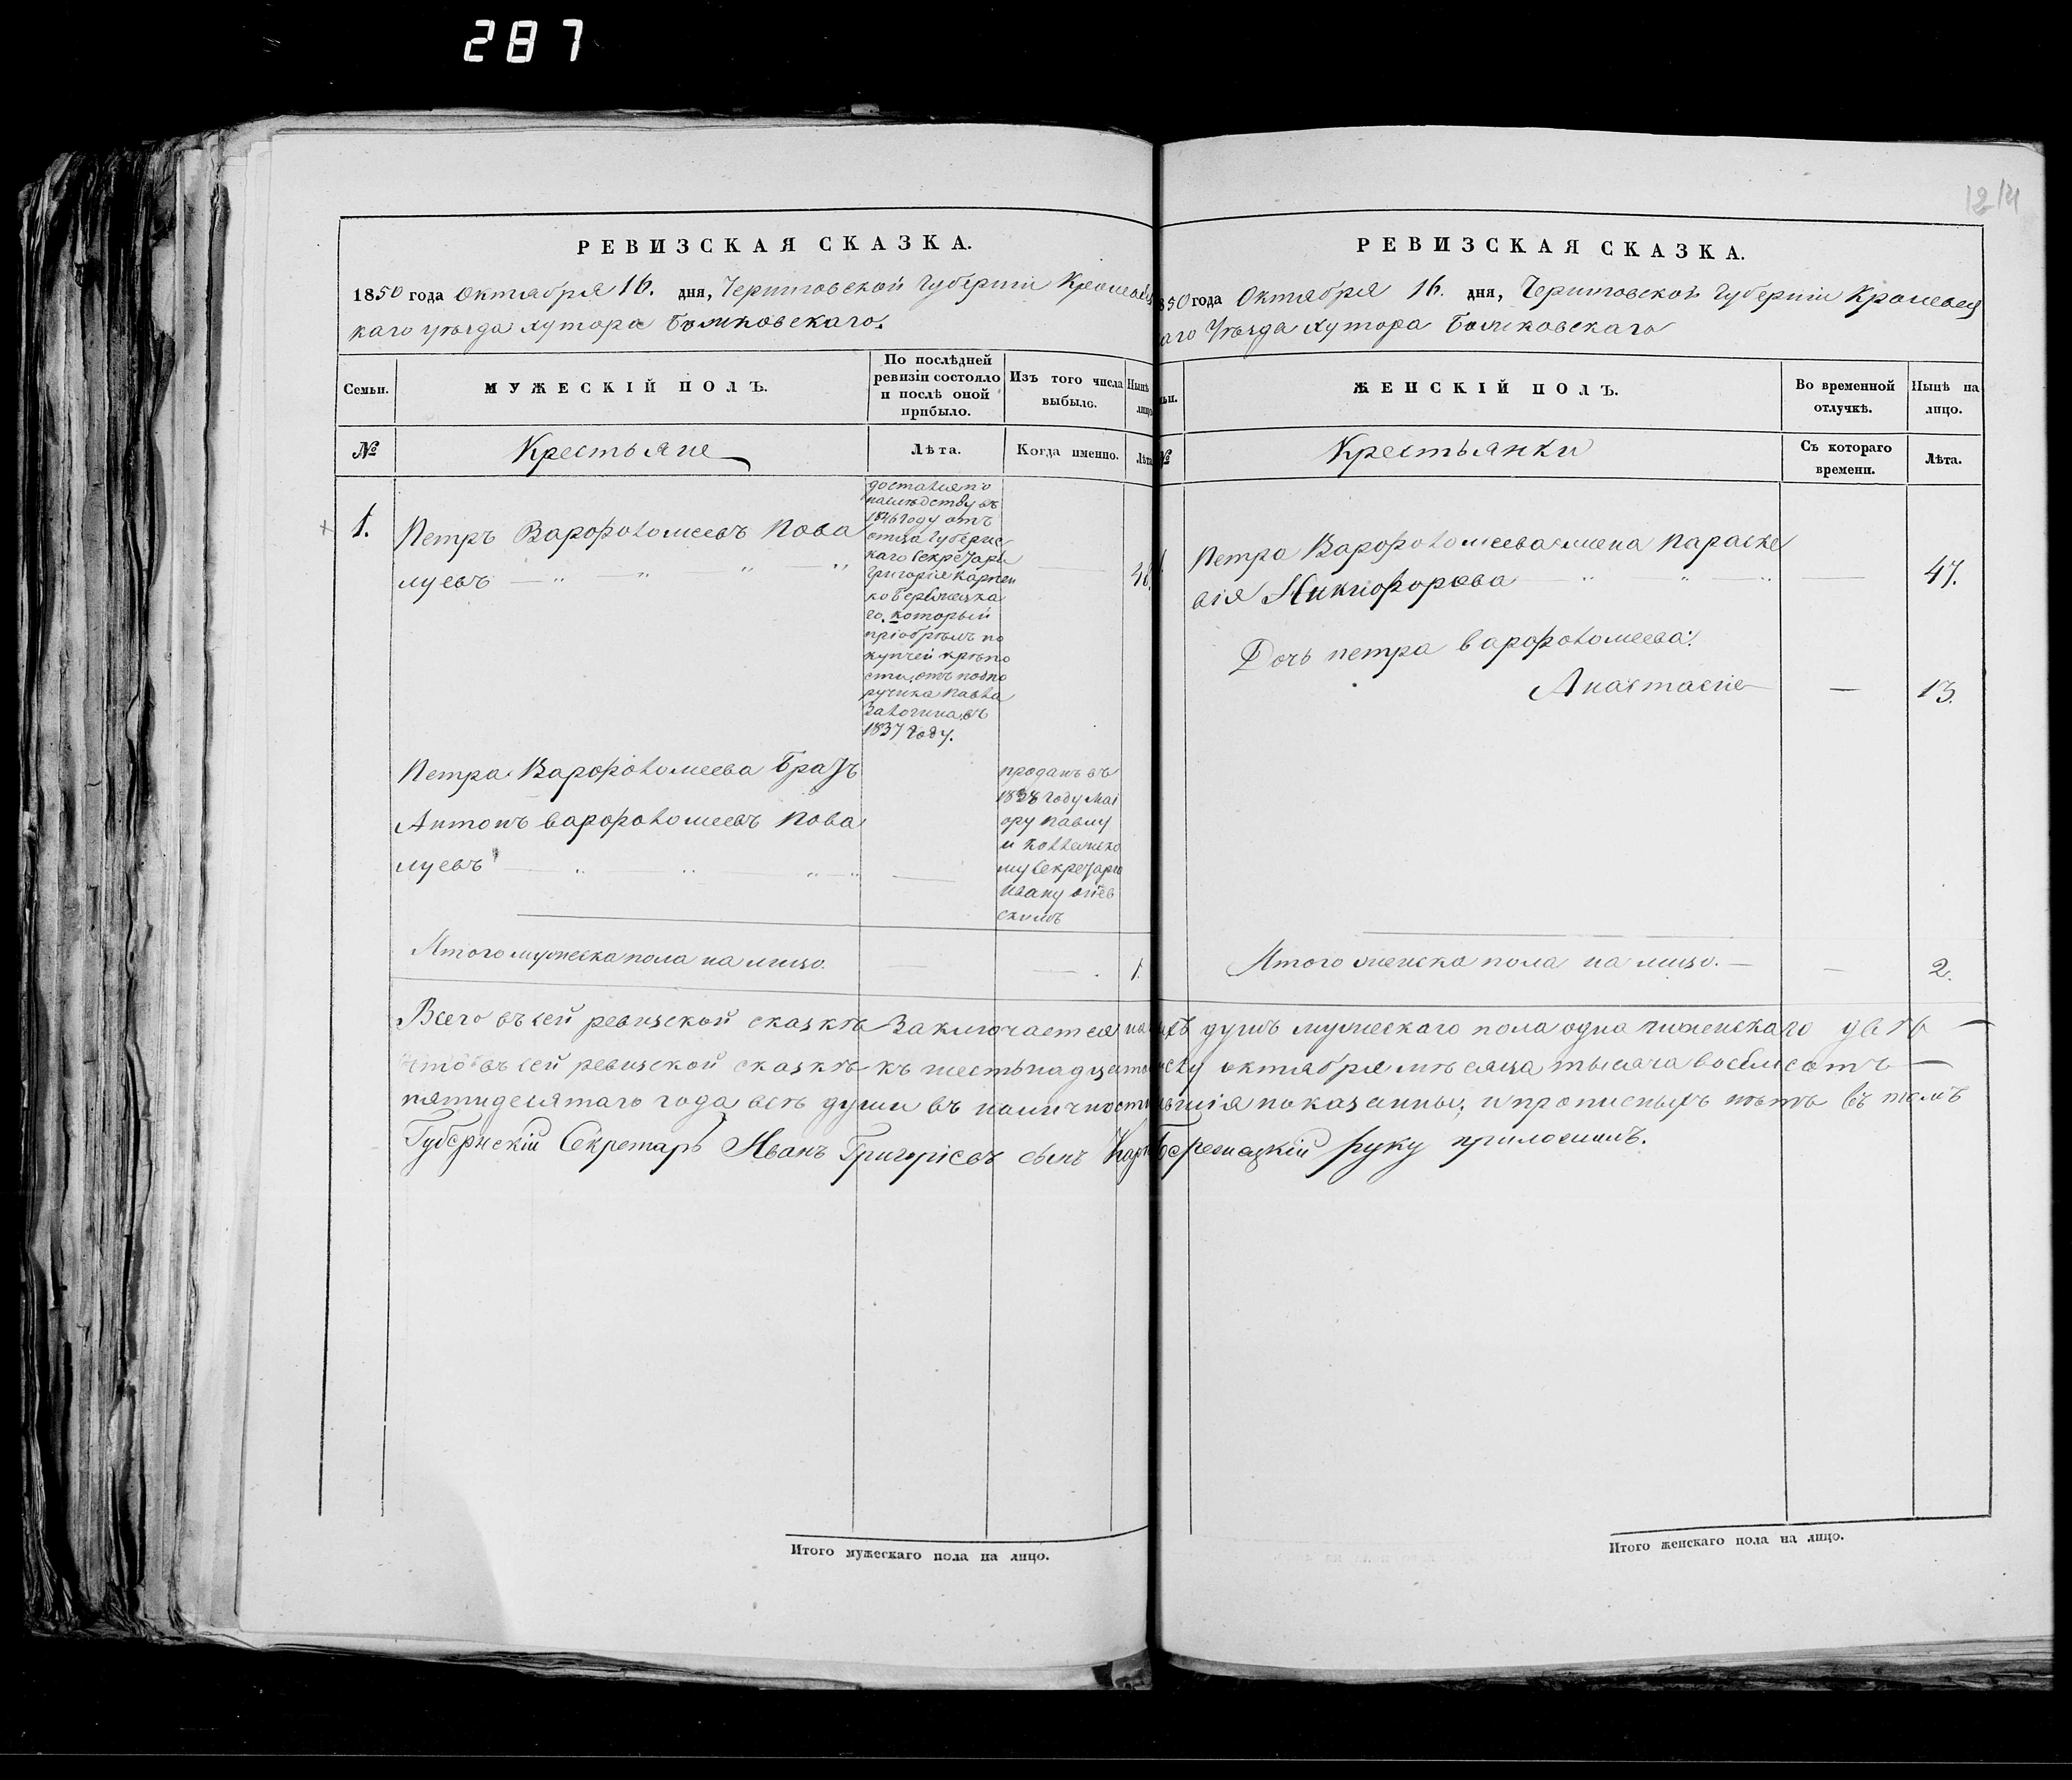 287
12/4
РЕВИЗСКАЯ СКАЗКА.
1850 года Октября 16. дня, Черниговской Губерніи Кролевец
каго уѣзда хутора
Семьи.
МУЖЕСКІЙ ПОЛЪ.
По послѣдней
ревизіи состояло
и послѣ оной
прибыло.
Изъ того числа
выбыло.
Нынѣ
лицо
№
Крестьяне
Лѣта.
Когда именно.
Лѣта
1.
Петръ Варфоломеевъ Пова
луевъ — „ — „ „ — „
достался по
наслѣдству въ
1846 году отъ
отца Губернс
каго Секретаря
Григорія Карпен
ко
го, который
пріобрѣлъ по
купчей крѣпо
сти, отъ подпо
ручика Павла
въ
1837 году.
—
Петра Варфоломеева братъ
Антонъ Варфоломеевъ Пова
луевъ
—
проданъ въ
1838 году Маі
ору Павлу
и Коллежско
му Секретарю
Ивану
скимъ
Итого мужеска пола на лицо.
— — 1.
РЕВИЗСКАЯ СКАЗКА.
850 года Октября 16. дня, Черниговской Губерніи Кролевец
аго Уѣзда хутора
ьи.
ЖЕНСКІЙ ПОЛЪ.
Во временной
отлучкѣ.
Нынѣ на
лицо.
№
Крестьянки
Съ котораго
времени.
Лѣта.
Петра Варфоломеева жена Параске
вія Никифорова — „ „ „
47.
Дочь петра варфоломеева:
Анастасіе — — 13.
Итого женска пола на лицо. — — 2.
Всего въ сей ревизской сказкѣ Заключается на душъ мужескаго пола одна и женскаго двѣ —
Что въ сей ревизской сказкѣ къ шестьнадцатому октября мѣсяца тысяча восемсотъ —
пятидесятаго года всѣ души въ наличности показанны; и прописныхъ нѣтъ въ томъ
Губернскій Секретарь Иванъ Григорьевъ сынъ руку приложилъ.
Итого мужескаго пола на лицо.
Итого женскаго пола на лицо.